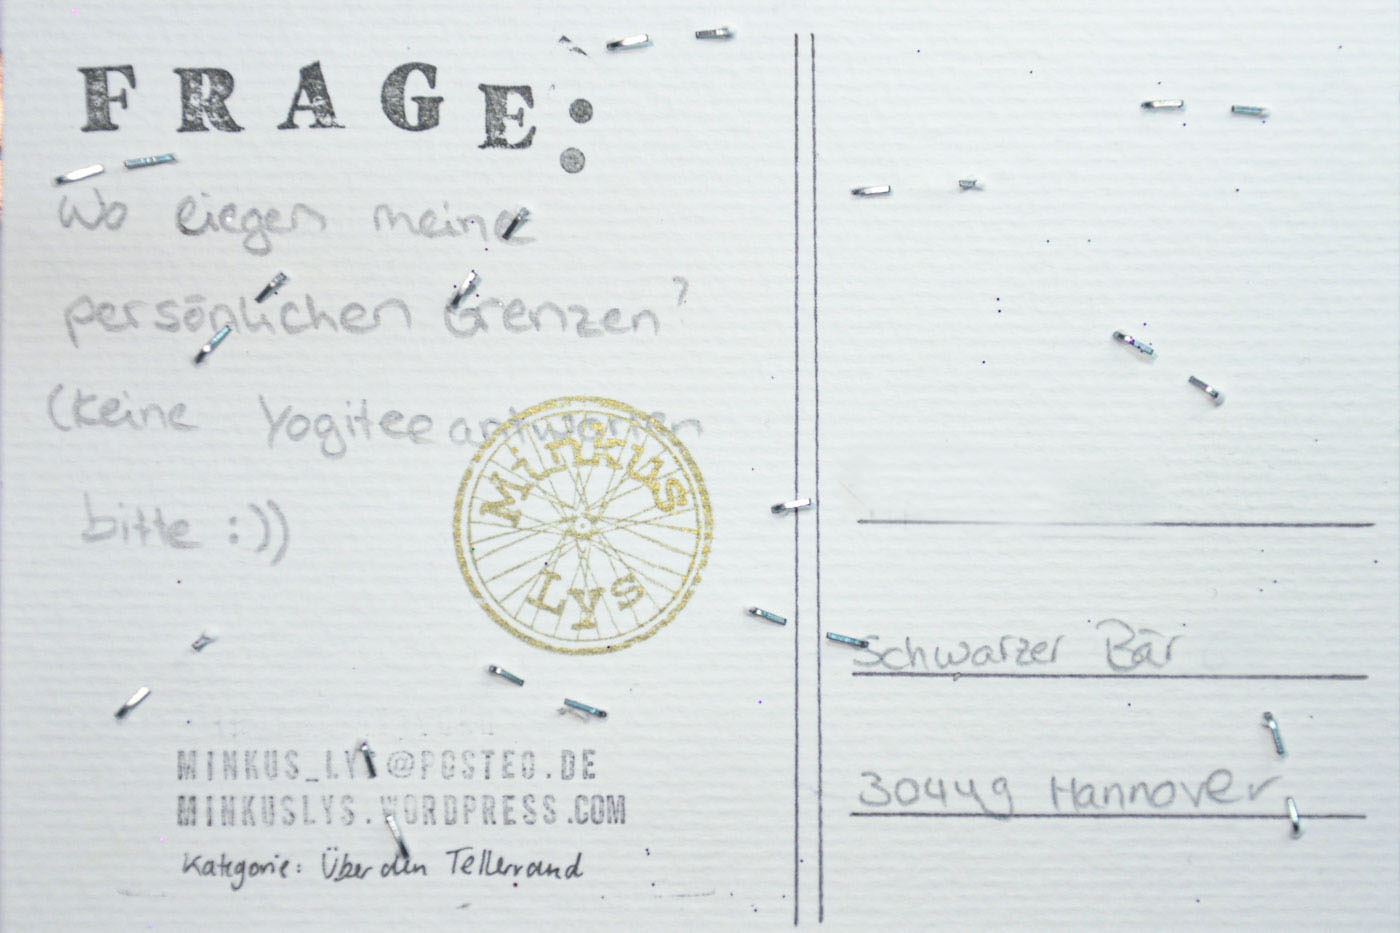 FRAGE:
Wo liegen meine
persönlichen Grenzen?
(keine Yogitee antworten
bitte :))
Minkus
Lys
MINKUS_LYS@POSTEO.DE
MINKUSLYS.WORDPRESS.COM
Kategorie: Über den Tellerrand
Schwarzer Bär
30449 Hannover